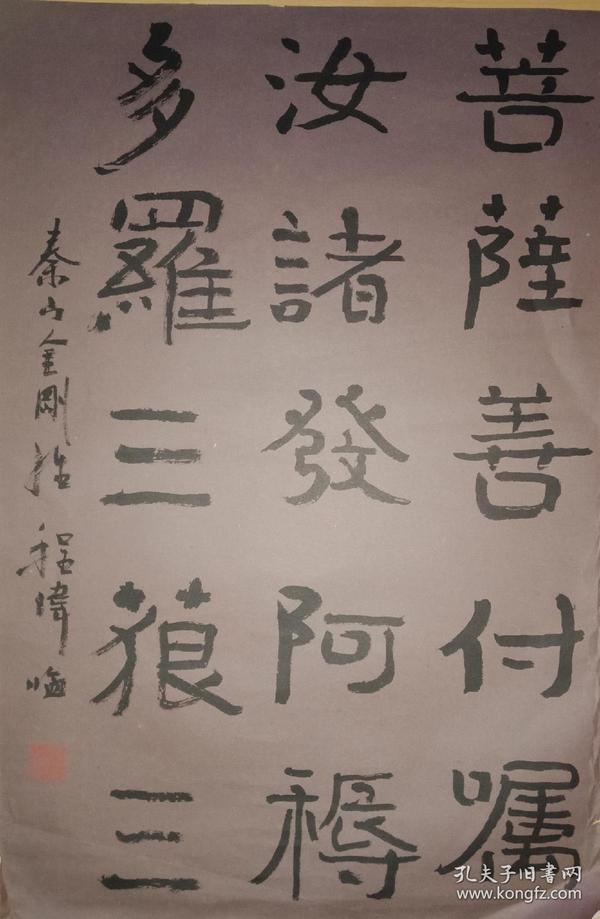 菩薩善付囑
汝諸發阿耨
多羅三藐三
泰山金剛經 程偉臨
孔夫子旧书网
www.kongfz.com